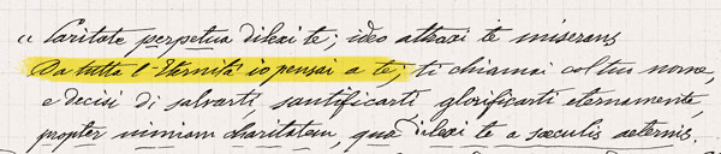 « Caritate perpetua dilexi te; ideo attraxi te miserans
Da tutta l'Eternità io pensai a te; ti chiamai col tuo nome,
e decisi di salvarti, santificarti, glorificarti eternamente,
propter nimiam charitatem, qua dilexi te a sæculis æternis.